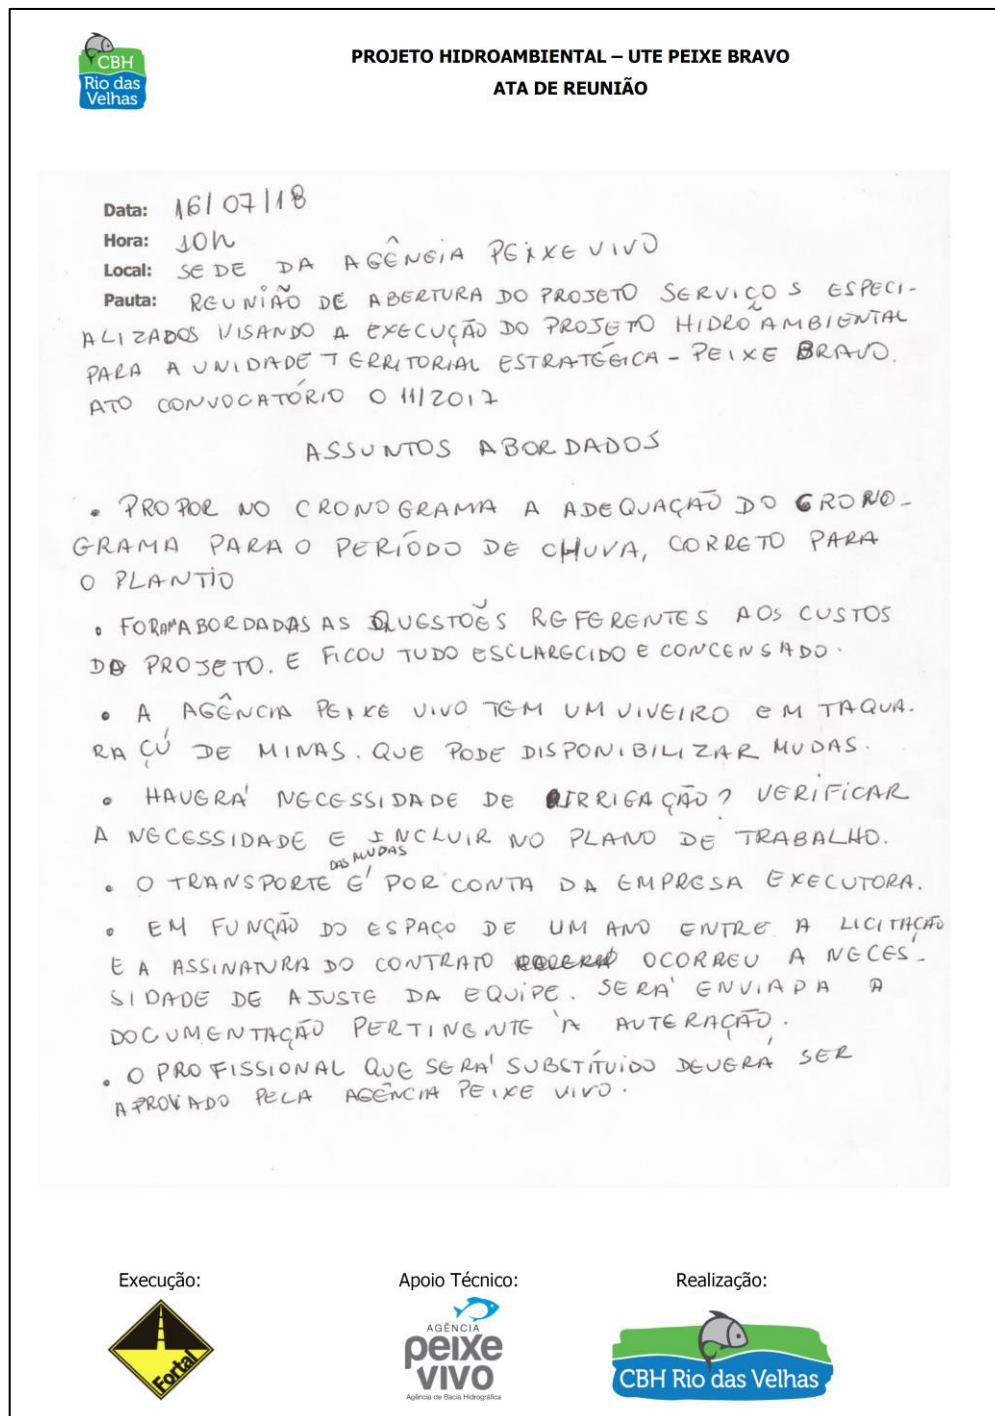 CBH
Rio das
Velhas
PROJETO HIDROAMBIENTAL – UTE PEIXE BRAVO
ATA DE REUNIÃO
Data: 16/07/18
Hora: 10h
Local: SEDE DA AGÊNCIA PEIXE VIVO
Pauta: REUNIÃO DE ABERTURA DO PROJETO SERVIÇOS ESPECI-
ALIZADOS VISANDO A EXECUÇÃO DO PROJETO HIDROAMBIENTAL
PARA A UNIDADE TERRITORIAL ESTRATÉGICA - PEIXE BRAVO.
ATO CONVOCATÓRIO 011/2017
ASSUNTOS ABORDADOS
• PROPOR NO CRONOGRAMA A ADEQUAÇÃO DO CRONO-
GRAMA PARA O PERÍODO DE CHUVA, CORRETO PARA
O PLANTIO
• FORAM ABORDADAS AS QUESTÕES REFERENTES AOS CUSTOS
DO PROJETO. E FICOU TUDO ESCLARECIDO E CONCENSADO.
• A AGÊNCIA PEIXE VIVO TEM UM VIVEIRO EM TAQUA-
RAÇÚ DE MINAS. QUE PODE DISPONIBILIZAR MUDAS.
• HAVERÁ NECESSIDADE DE IRRIGAÇÃO? VERIFICAR
A NECESSIDADE E INCLUIR NO PLANO DE TRABALHO.
• O TRANSPORTE DAS MUDAS É POR CONTA DA EMPRESA EXECUTORA.
• EM FUNÇÃO DO ESPAÇO DE UM ANO ENTRE A LICITAÇÃO
E A ASSINATURA DO CONTRATO OCORREU A NECES-
SIDADE DE AJUSTE DA EQUIPE. SERÁ ENVIADA A
DOCUMENTAÇÃO PERTINENTE À AUTERAÇÃO.
• O PROFISSIONAL QUE SERÁ SUBSTÍTUIDO DEVERÁ SER
APROVADO PELA AGÊNCIA PEIXE VIVO.
Execução: Apoio Técnico: Realização:
Fortal
AGÊNCIA
peixe
vivo
Agência de Bacia Hidrográfica
CBH Rio das Velhas